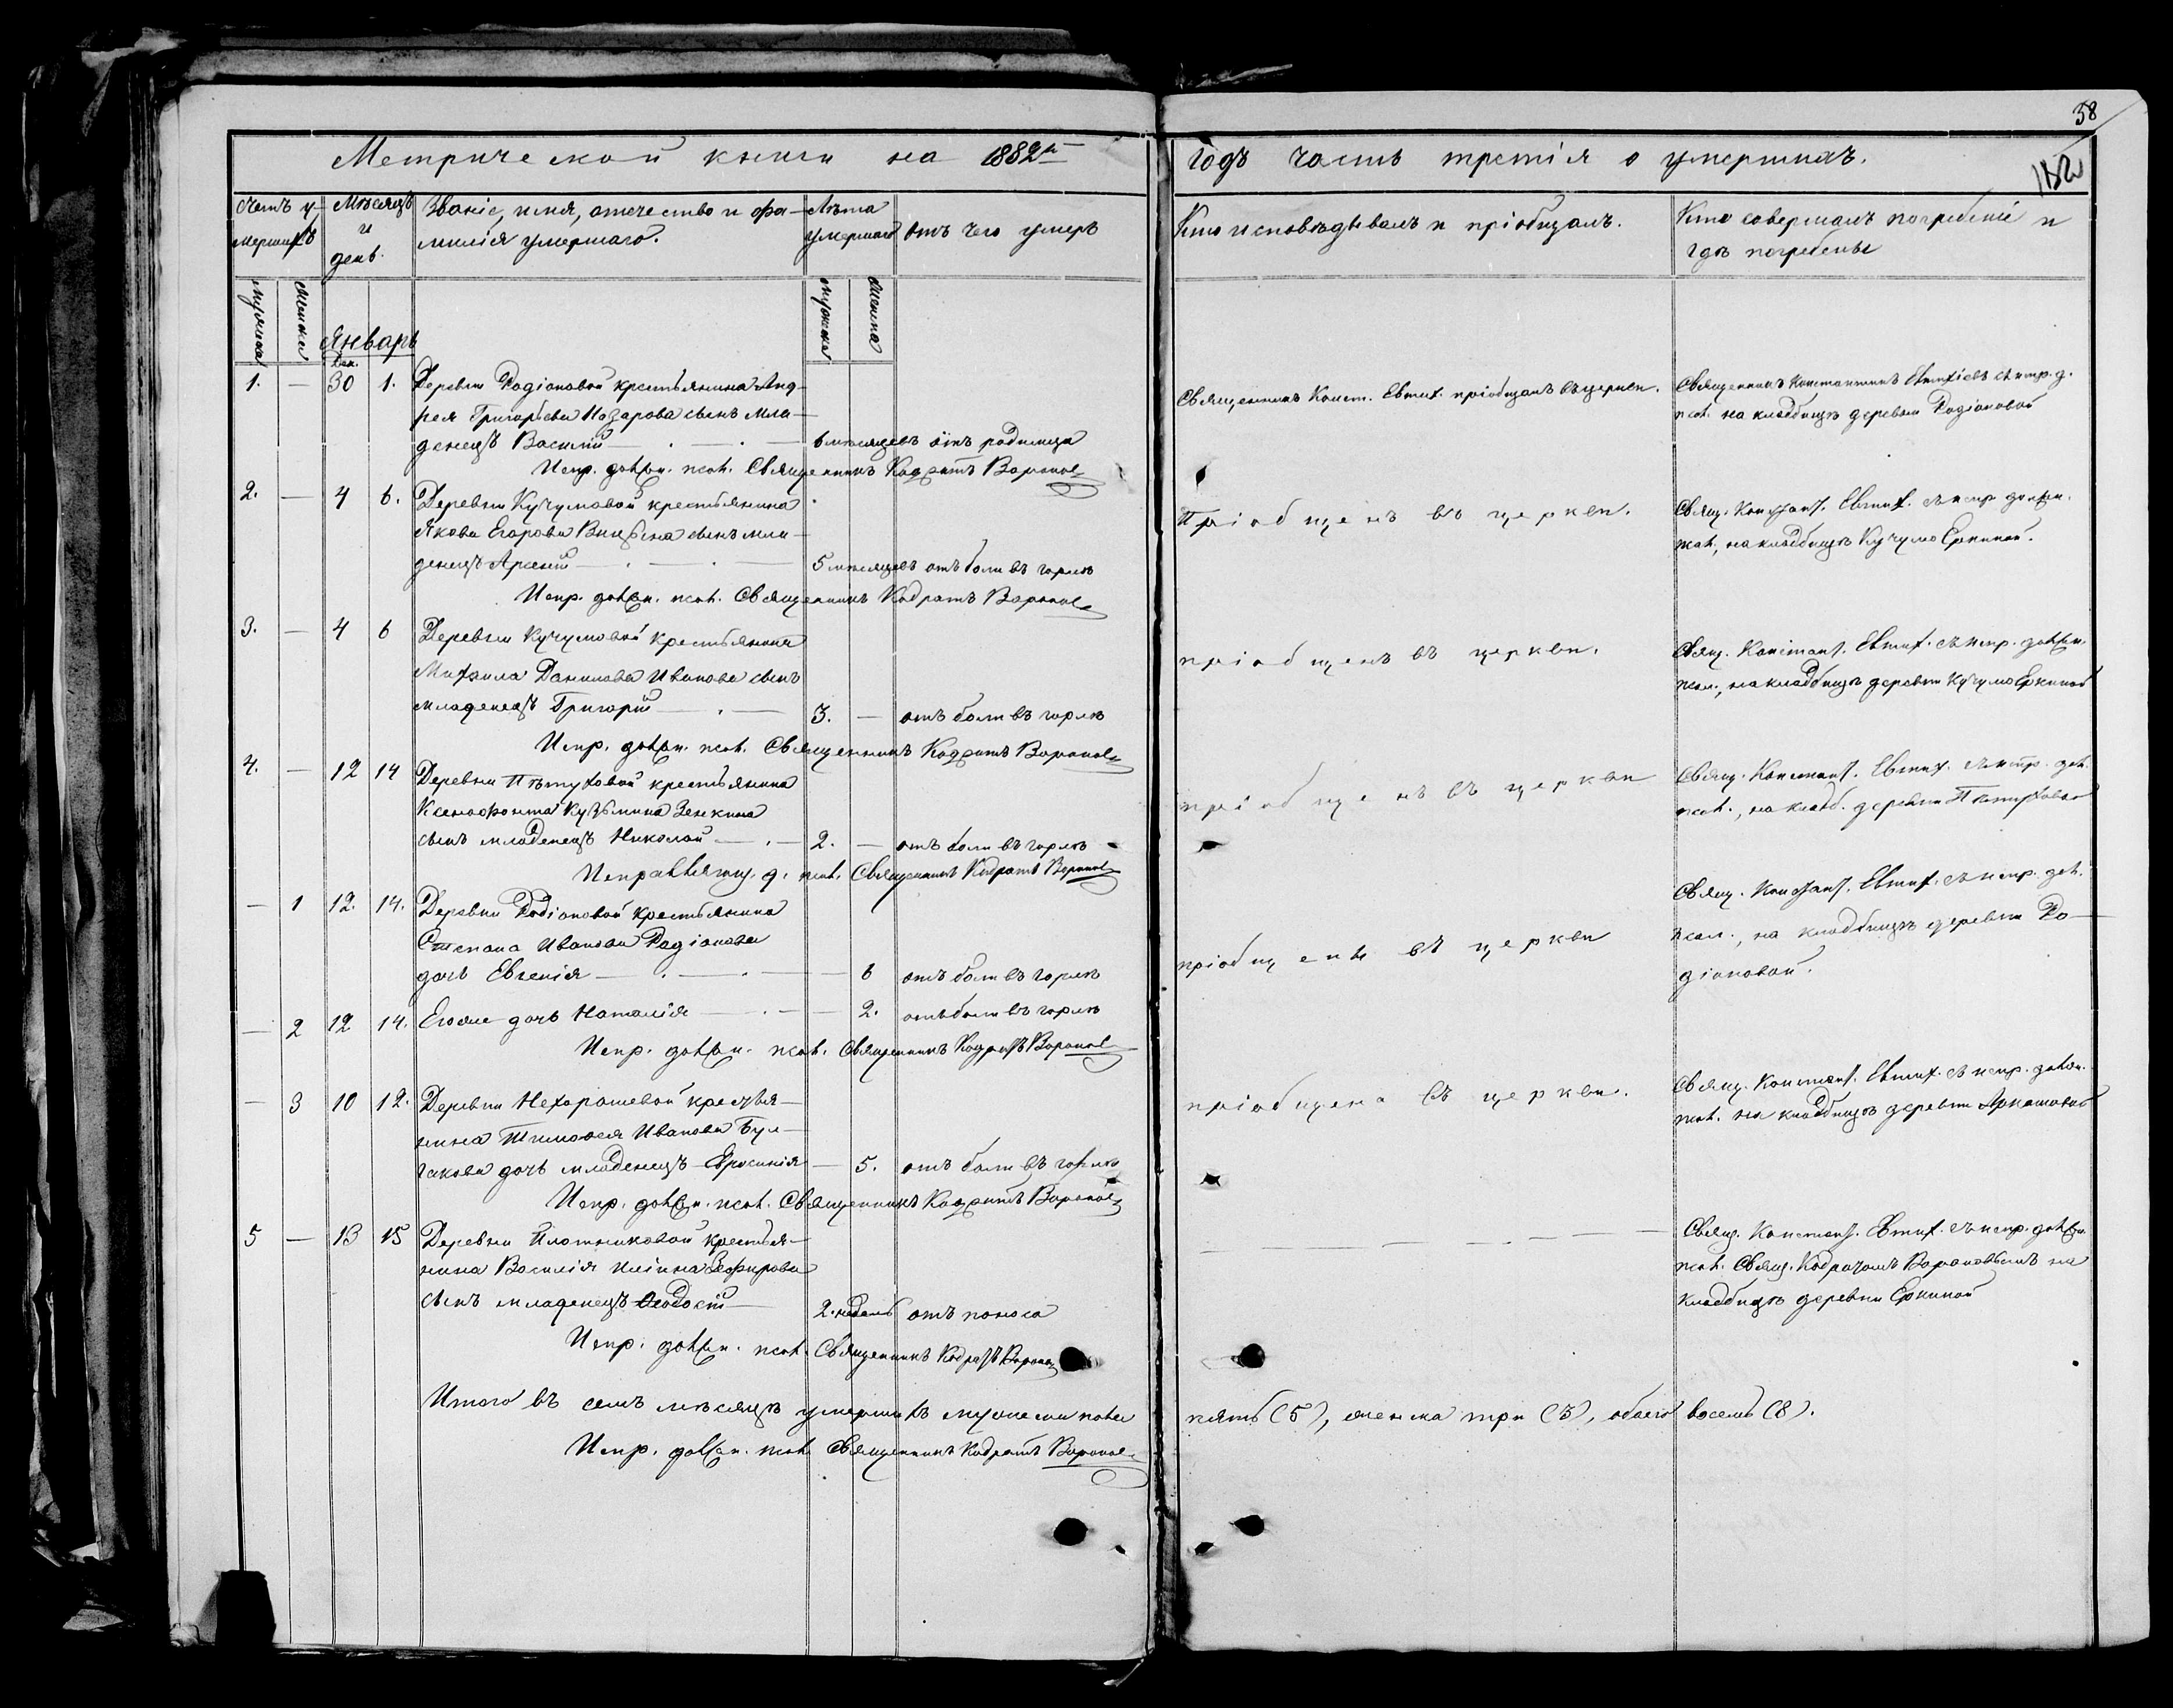 58
Метрической книги на 1882й годъ часть третія о умершихъ.
112
Счетъ у-
мершихъ
Мѣсяцъ
и
день.
Званіе, имя, отечество и фа-
милія умершаго.
Лѣта
умершаго
Отъ чего умеръ
Кто исповѣдывалъ и пріобщалъ.
Кто совершалъ погребеніе и
гдѣ погребены
мужска
женска
Январь
мужска
женска
Дек.
1. — 30 1. Деревни Родіоновой крестьянина Анд-
рея Григорьева Назарова сынъ мла-
денецъ Василій 6 мѣсяцевъ отъ родимца
Священникъ Конст. Евтих. пріобщалъ въ церкви.
Священникъ Константинъ Евтихіевъ съ испр. д.
псал. на кладбищѣ деревни Родіоновой
Испр. должн. псал. Священникъ Кодратъ Вороновъ
2. — 4 6. Деревни Кучумовой крестьянина
Якова Егорова сынъ мла-
денецъ Арсеній 5 мѣсяцевъ отъ боли въ горлѣ
Пріобщенъ въ церкви.
Свящ. Констант. Евтих. съ испр. должн.
псал., на кладбищѣ Кучумо Еркиной.
Испр. должн. псал. Священникъ Кодратъ Вороновъ
3. — 4 6 Деревни Кучумовой крестьянина
Михаила Данилова Иванова сынъ
младенецъ Григорій 3. — отъ боли въ горлѣ
пріобщенъ въ церкви.
Свящ. Констант. Евтих. съ испр. должн.
псал., на кладбищѣ деревни Кучумо Еркиной
Испр. должн. псал. Священникъ Кодратъ Вороновъ
4. — 12 14 Деревни Пѣтуховой крестьянина
Ксенофонта Кузьмина Зенкина
сынъ младенецъ Николай 2. — отъ боли въ горлѣ
пріобщенъ въ церкви
Свящ. Констант. Евтих. съ испр. дол.
псал., на кладб. деревни Пѣтуховой
Исправляющ. д. псал. Священникъ Кодратъ Вороновъ
— 1 12. 14. Деревни Родіоновой крестьянина
Степана Иванова Родіонова
дочь Евгенія — 6 отъ боли въ горлѣ
пріобщены въ церкви
Свящ. Констант. Евтих. съ испр. дол.
псал., на кладбищѣ деревни Ро-
діоновой.
— 2 12 14. Егоже дочь Наталія — 2. отъ боли въ горлѣ
Испр. должн. псал. Священникъ Кодратъ Вороновъ
— 3 10 12. Деревни Нехорошевой крестья-
нина Тимоѳея Иванова Бул-
гакова дочь младенецъ Евросинія — 5. отъ боли въ горлѣ
пріобщена въ церкви.
Свящ. Констант. Евтих. съ испр. должн.
псал. на кладбищѣ деревни Аркашовой
Испр. должн. псал. Священникъ Кодратъ Вороновъ
5 — 13 15 Деревни Плотниковой крестья-
нина Василія Ильина Зефирова
сынъ младенецъ Ѳеодосій 2. недель отъ поноса
Свящ. Констант. Евтих. съ испр. должн.
псал. Свящ. Кодратомъ Вороновымъ на
кладбищѣ деревни Еркиной
Испр. должн. псал. Священникъ Кодратъ Вороновъ
Итого въ семъ мѣсяцѣ умершихъ мужеска пола пять (5), женска три (3), обоего восемь (8).
Испр. должн. псал. Священникъ Кодратъ Вороновъ